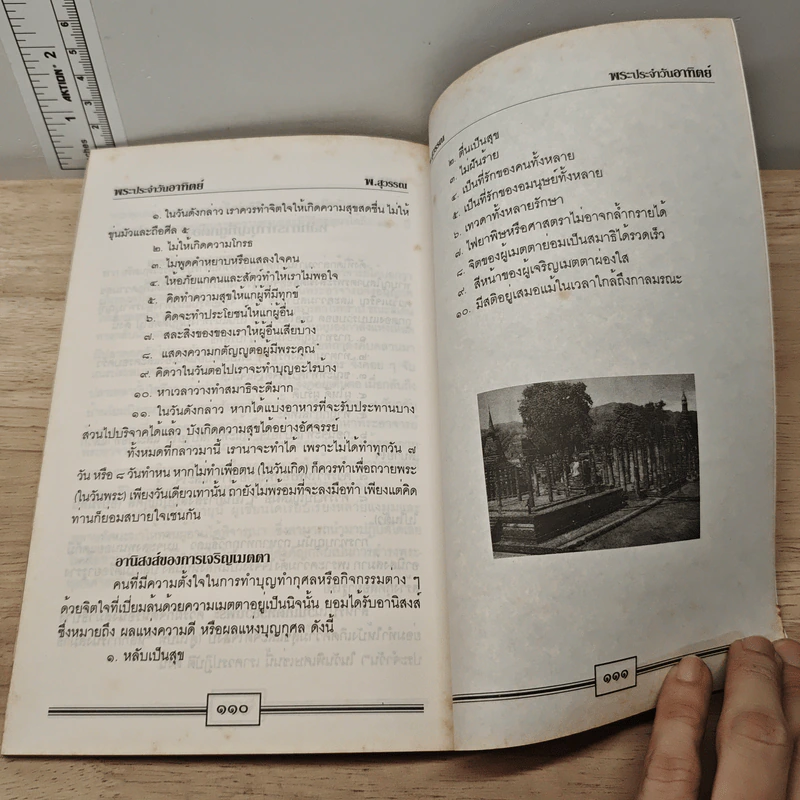 AKTION
1
2
5
6
พระประจำวันอาทิตย์ พ.สุวรรณ
๑. ในวันดังกล่าว เราควรทำจิตใจให้เกิดความสุขสดชื่น ไม่ให้
ขุ่นมัวและถือศีล ๕
๒. ไม่ให้เกิดความโกรธ
๓. ไม่พูดคำหยาบหรือแสลงใจคน
๔. ให้อภัยแก่คนและสัตว์ทำให้เราไม่พอใจ
๕. คิดทำความสุขให้แก่ผู้ที่มีทุกข์
๖. คิดจะทำประโยชน์ให้แก่ผู้อื่น
๗. สละสิ่งของของเราให้ผู้อื่นเสียบ้าง
๘. แสดงความกตัญญูต่อผู้มีพระคุณ
๙. คิดว่าในวันต่อไปเราจะทำบุญอะไรบ้าง
๑๐. หาเวลาว่างทำสมาธิจะดีมาก
๑๑. ในวันดังกล่าว หากได้แบ่งอาหารที่จะรับประทานบาง
ส่วนไปบริจาคได้แล้ว บังเกิดความสุขได้อย่างอัศจรรย์
ทั้งหมดที่กล่าวมานี้ เราน่าจะทำได้ เพราะไม่ได้ทำทุกวัน ๗
วัน หรือ ๘ วันทำหน หากไม่ทำเพื่อตน (ในวันเกิด) ก็ควรทำเพื่อถวายพระ
(ในวันพระ) เพียงวันเดียวเท่านั้น ถ้ายังไม่พร้อมที่จะลงมือทำ เพียงแต่คิด
ท่านก็ย่อมสบายใจเช่นกัน
อานิสงส์ของการเจริญเมตตา
คนที่มีความตั้งใจในการทำบุญทำกุศลหรือกิจกรรมต่าง ๆ
ด้วยจิตใจที่เปี่ยมล้นด้วยความเมตตาอยู่เป็นนิจนั้น ย่อมได้รับอานิสงส์
ซึ่งหมายถึง ผลแห่งความดี หรือผลแห่งบุญกุศล ดังนี้
๑. หลับเป็นสุข
๑๑๐
พระประจำวันอาทิตย์
๒. ตื่นเป็นสุข
๓. ไม่ฝันร้าย
๔. เป็นที่รักของคนทั้งหลาย
๕. เป็นที่รักของอมนุษย์ทั้งหลาย
๖. เทวดาทั้งหลายรักษา
๗. ไฟยาพิษหรือศาสตราไม่อาจกล้ำกรายได้
๘. จิตของผู้เมตตาย่อมเป็นสมาธิได้รวดเร็ว
๙. สีหน้าของผู้เจริญเมตตาผ่องใส
๑๐. มีสติอยู่เสมอแม้ในเวลาใกล้ถึงกาลมรณะ
๑๑๑